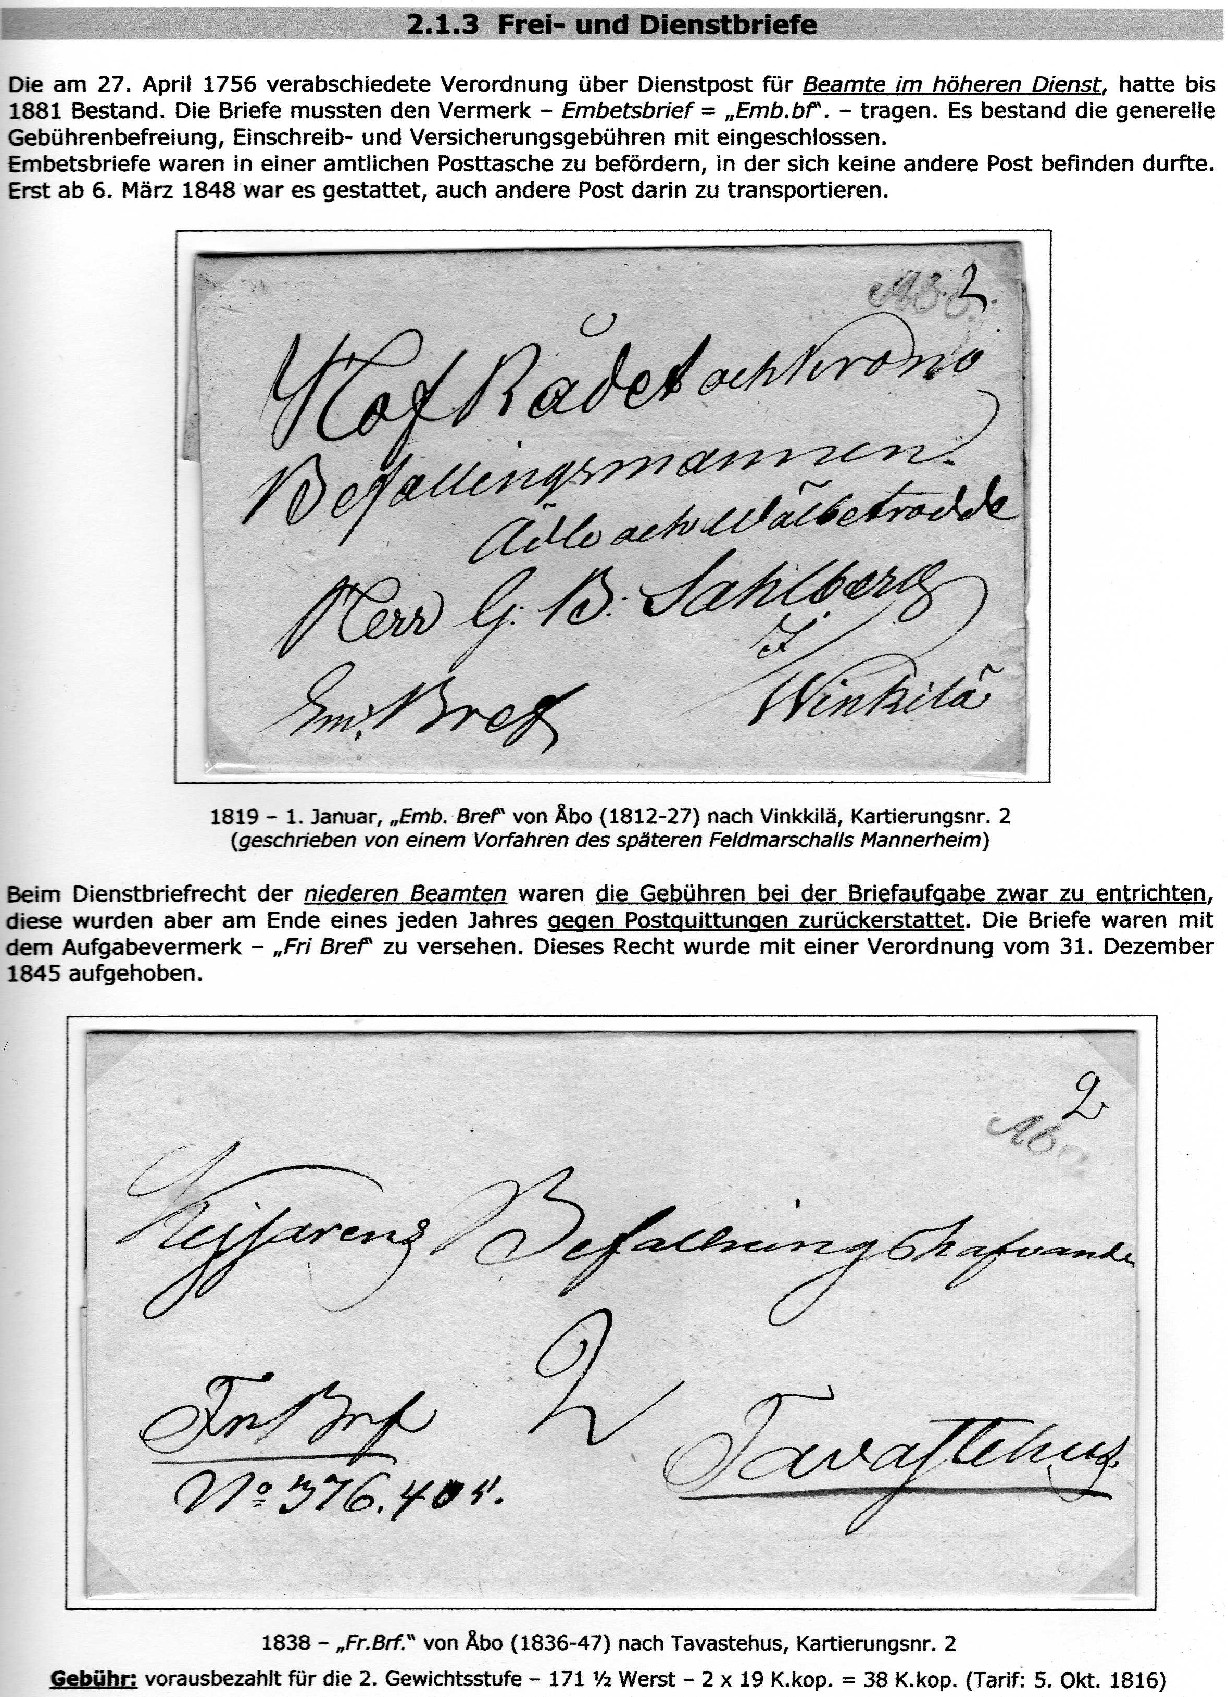 2.1.3 Frei- und Dienstbriefe
Die am 27. April 1756 verabschiedete Verordnung über Dienstpost für Beamte im höheren Dienst, hatte bis
1881 Bestand. Die Briefe mussten den Vermerk – Embetsbrief = „Emb.bf". – tragen. Es bestand die generelle
Gebührenbefreiung, Einschreib- und Versicherungsgebühren mit eingeschlossen.
Embetsbriefe waren in einer amtlichen Posttasche zu befördern, in der sich keine andere Post befinden durfte.
Erst ab 6. März 1848 war es gestattet, auch andere Post darin zu transportieren.
2.
Åbo.
Hof Rådet och Krono
Befallingsmannen.
Ädle och Wälbetrodde
Herr G. B. Sahlberg
I/
Winkilä
Em: Bref
1819 – 1. Januar, „Emb. Bref" von Åbo (1812-27) nach Vinkkilä, Kartierungsnr. 2
(geschrieben von einem Vorfahren des späteren Feldmarschalls Mannerheim)
Beim Dienstbriefrecht der niederen Beamten waren die Gebühren bei der Briefaufgabe zwar zu entrichten,
diese wurden aber am Ende eines jeden Jahres gegen Postquittungen zurückerstattet. Die Briefe waren mit
dem Aufgabevermerk – „Fri Bref" zu versehen. Dieses Recht wurde mit einer Verordnung vom 31. Dezember
1845 aufgehoben.
2
Åbo
Kejsarens Befallningshafvande
2
Fr Brf
Tavastehus.
No 376. 405.
1838 – „Fr.Brf." von Åbo (1836-47) nach Tavastehus, Kartierungsnr. 2
Gebühr: vorausbezahlt für die 2. Gewichtsstufe – 171 ½ Werst – 2 x 19 K.kop. = 38 K.kop. (Tarif: 5. Okt. 1816)